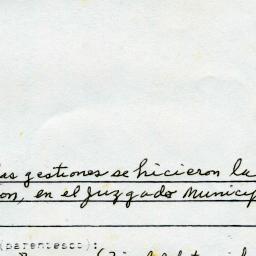 las gestiones se hicieron la
on, en el Juzgado Municip
(parentesco):